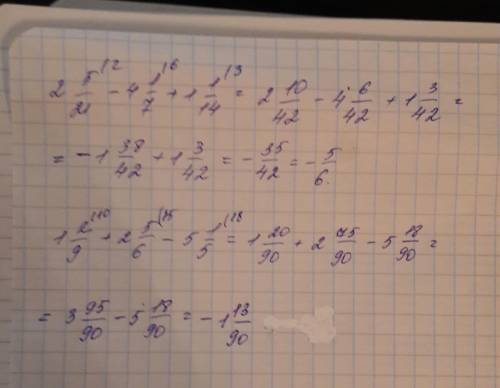 2 5/21 ^(2 - 4 1/7 ^(6 + 1 1/14 ^(3 = 2 10/42 - 4 6/42 + 1 3/42 =
= -1 38/42 + 1 3/42 = - 35/42 = - 5/6.
1 2/9 ^(10 + 2 5/6 ^(15 - 5 1/5 ^(18 = 1 20/90 + 2 75/90 - 5 18/90 =
= 3 95/90 - 5 18/90 = - 1 13/90